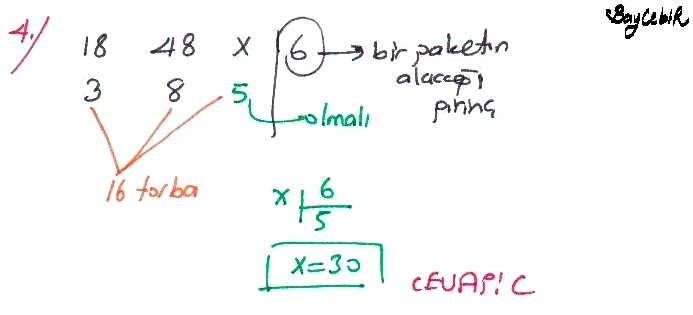 BayCebiR
4.) 18 48 x | 6 → bir paketin
alacağı
pirinç
3 8 5 → olmalı
16 torba
x | 6
5
x=30
CEVAP: C